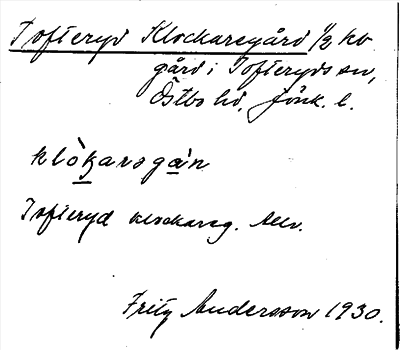 Tofteryd Klockaregård 1/2 kb
gård i Tofteryds sn,
Östbo hd, Jönk. l.
klòkarsgàn
Tofteryd klockareg.
Fritz Andersson 1930.